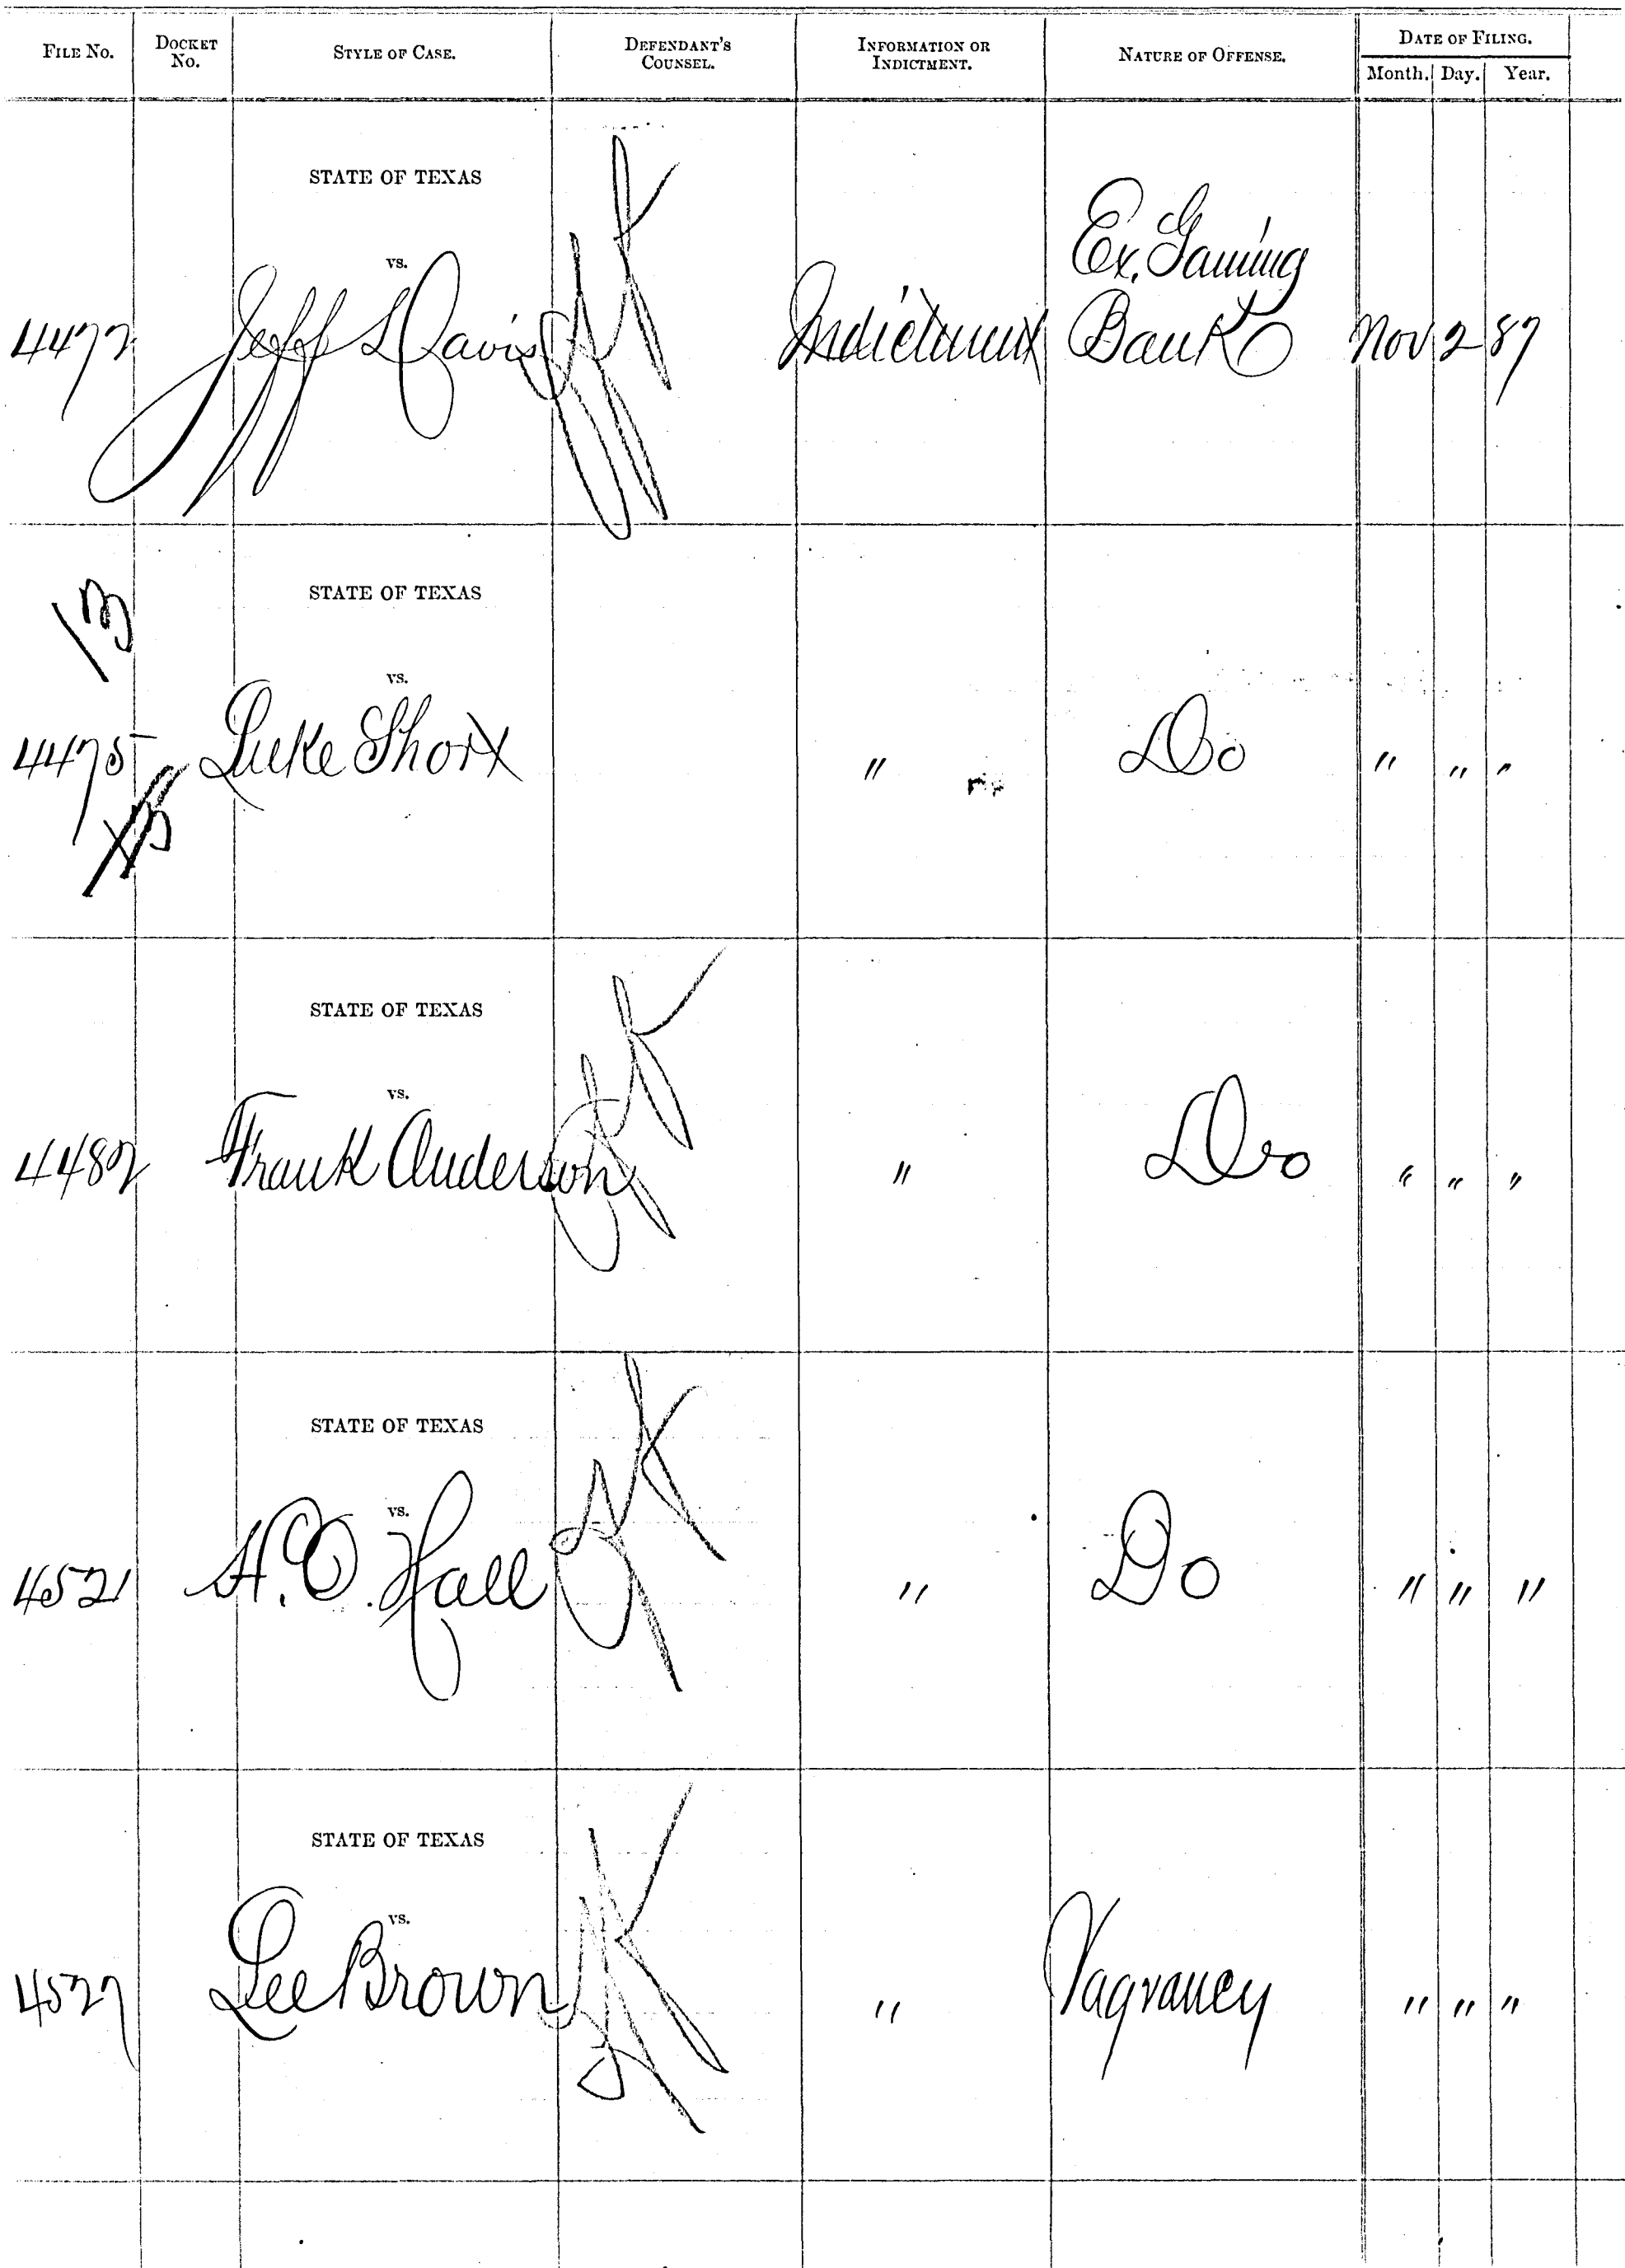 FILE No. DOCKET No. STYLE OF CASE. DEFENDANT'S COUNSEL. INFORMATION OR INDICTMENT. NATURE OF OFFENSE. DATE OF FILING.
Month. Day. Year.
STATE OF TEXAS
vs.
4472 Jeff L Davis Indictment Ex. Gaming Bank Nov 2 87
13
STATE OF TEXAS
vs.
4475 Luke Short " Do " " "
STATE OF TEXAS
vs.
4482 Frank Anderson " Do " " "
STATE OF TEXAS
vs.
4521 H.O. Hall " Do " " "
STATE OF TEXAS
vs.
4527 Lee Brown " Vagrancy " " "